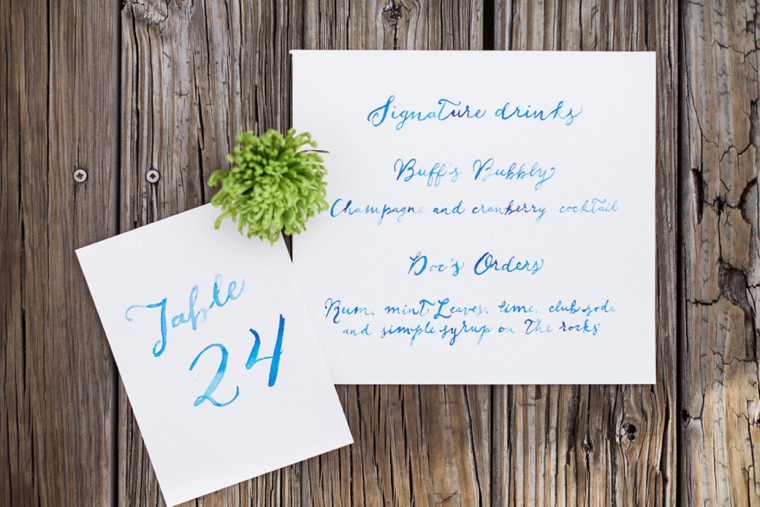 Signature drinks
Buff's Bubbly
Champagne and cranberry cocktail
Doc's Orders
Rum, mint Leaves, lime, club soda
and simple syrup on the rocks
Table
24